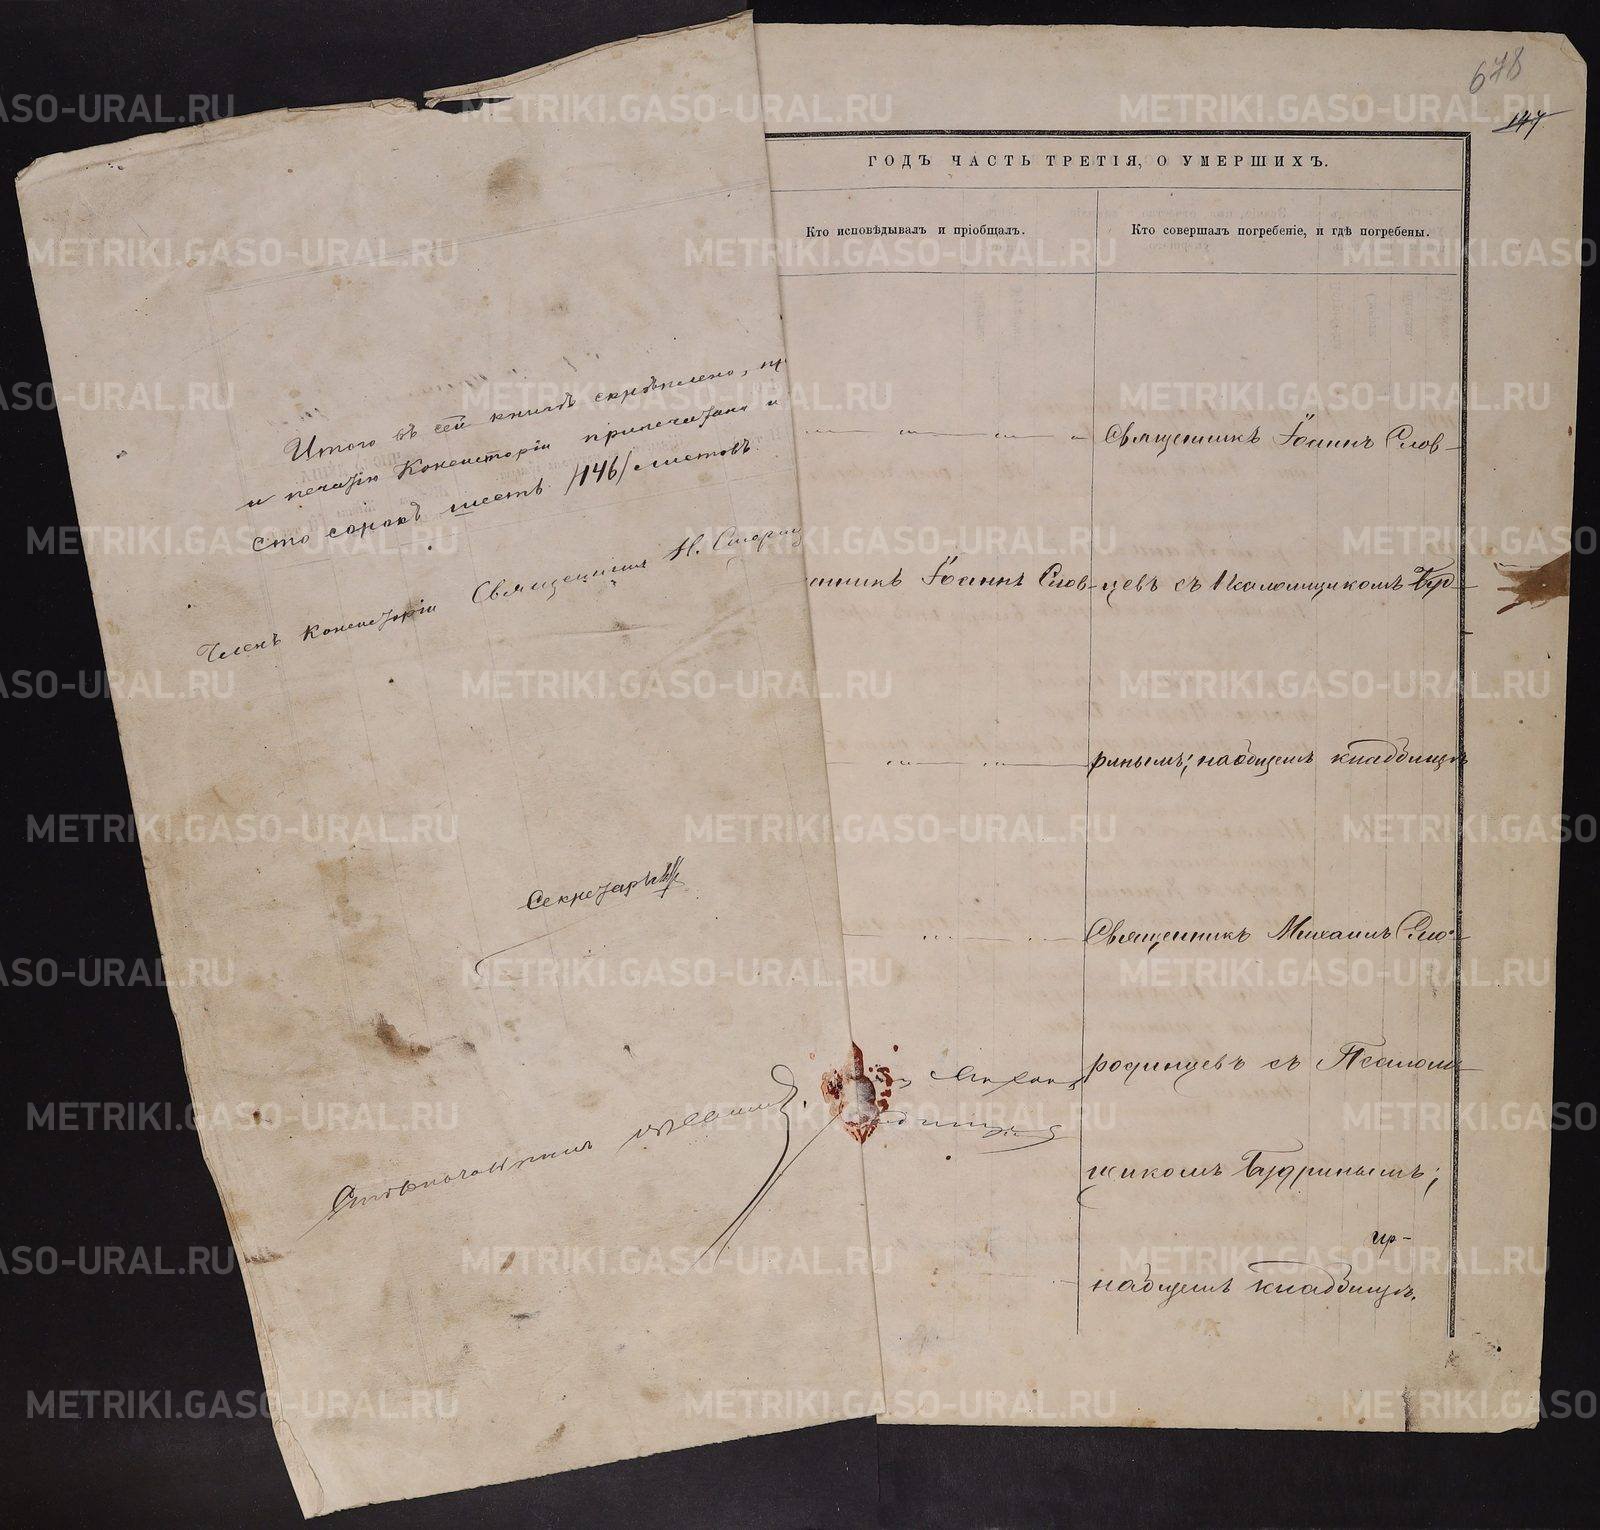 678
147
ГОДЪ ЧАСТЬ ТРЕТІЯ, О УМЕРШИХЪ.
Кто исповѣдывалъ и пріобщалъ.
Кто совершалъ погребеніе, и гдѣ погребены.
Итого въ сей книгѣ скрѣплено, пр
и печатію Консисторіи припечатано и
сто сорокъ шесть /146/ листовъ.
Членъ Консисторіи Священникъ Н.
Секретарь
Столоначальникъ
Священникъ Іоаннъ Слов-
нникъ Іоаннъ Слов-
цевъ съ Псаломщикомъ Буд-
ринымъ; на общемъ кладбищѣ
Священникъ Михаилъ Сло-
родинцевъ съ Псалом-
щикомъ Будринымъ;
пр-
на общемъ кладбищѣ.
METRIKI.GASO-URAL.RU